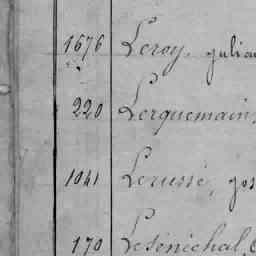 1676 Leroy, julia
220 Lerquemain,
1041 Lerussé, jos
170 Lesénéchal,